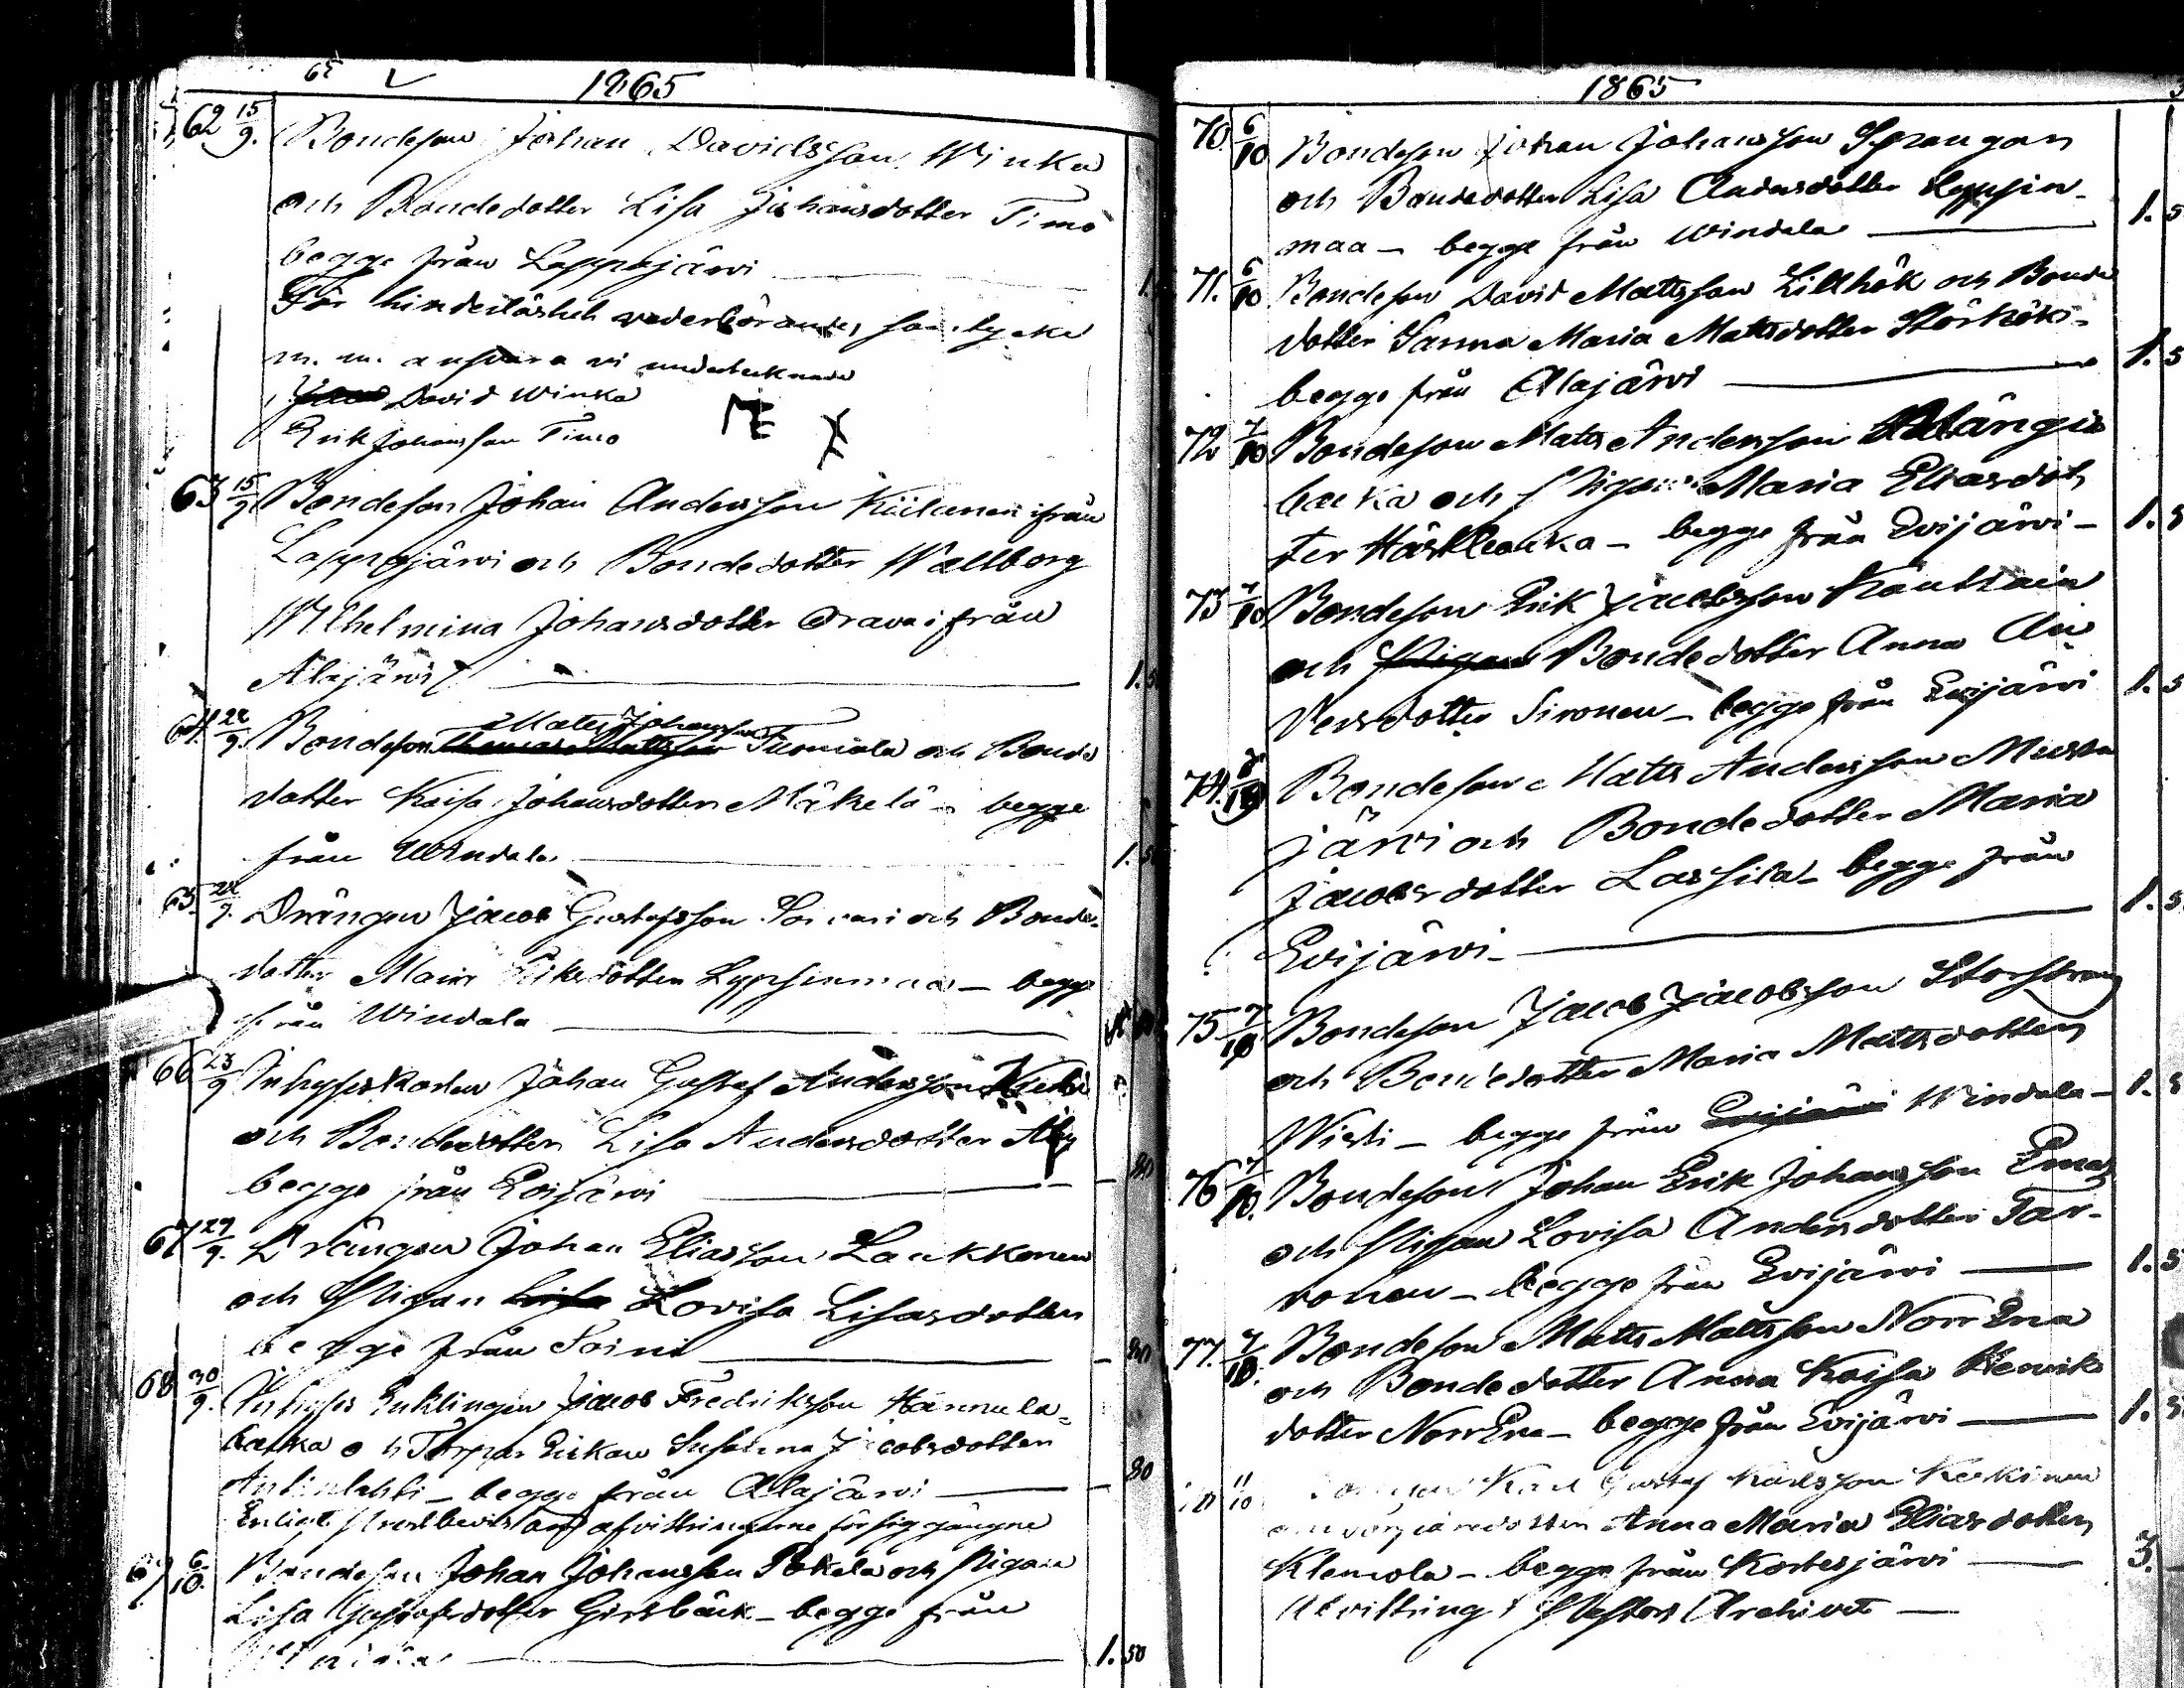 65 1865
62 15/9. Bondeson Johan Davidsson Winka
och Bondedotter Lisa Johansdotter Timo
begge från Lappajärvi — 1.
För hinderlöshet vederbörandes samtycke
m. m. ansvara vi undertecknade
David Winka
Erik Johansson Timo
63 15/9 Bondeson Johan Andersson Kiilunen ifrån
Lappajärvi och Bondedotter Wallborg
Wilhelmina Johansdotter Orava ifrån
Alajärvi — 1.5
Matts Johansson
64. 22/9. Bondeson Thomas Mattsson Tuomola och Bonde
dotter Kaisa Johansdotter Mäkelä - begge
från Windala — 1.50
65. 22/9. Drängen Jacob Gustafsson och Bonde-
dotter Maria Eriksdotter Lyypsinmaa - begge
från Windala —
66 23/9 Inhyseskarlen Johan Gustaf Andersson
och Bondedotter Lisa Andersdotter
begge från Evijärvi — 80
67 29/9. Drängen Johan Eliasson Laukkonen
och Pigan Lisa Lovisa Lisasdotter
begge från Soini — 80
68 30/9. Inhyses Enklingen Jacob Fredriksson Hannula-
backa och Torpar Enkan Susanna Jacobsdotter
Antinlahti - begge från Alajärvi — 80
Enligt Prestbevis äro afvittringarne för sig gångne
69 6/10. Bondeson Johan Johansson Pokela och Pigan
Lisa Gustafsdotter Girsbäck - begge från
Windala — 1.50
1865
70. 6/10 Bondeson Johan Johansson Sprangan
och Bondedotter Lisa Andersdotter Lyypsin-
maa - begge från Windala — 1.5
71. 6/10 Bondeson David Mattsson Lillhök och Bonde
dotter Sanna Maria Mattsdotter Storhök -
begge från Alajärvi — 1.5
72 7/10 Bondeson Matts Andersson Långis
backa och Pigan Maria Eliasdot
ter Härkbacka - begge från Evijärvi - 1.5
73 7/10 Bondeson Erik Jacobsson Känttain
och Pigan Bondedotter Anna An
dersdotter Sironen - begge från Evijärvi 1.5
74. 7/10 Bondeson Matts Andersson Musta
järvi och Bondedotter Maria
Jacobsdotter Lassila - begge från
Evijärvi - 1.5
75 7/10 Bondeson Jacob Jacobsson Storstrang
och Bondedotter Maria Mattsdotter
Wisti - begge från Evijärvi Windala - 1.5
76 7/10. Bondeson Johan Erik Johansson Ena
och Pigan Lovisa Andersdotter Tar-
vonen - begge från Evijärvi — 1.5
77. 7/10. Bondeson Matts Mattsson Norr Ena
och Bondedotter Anna Kaisa Henrik
dotter Norr Ena - begge från Evijärvi — 1.5
11/10 Karl Gustaf Karlsson Keskinen
Anna Maria Eliasdotter
Klemola - begge från Kortesjärvi — 3.
Afvittring i Pastors Archivet —